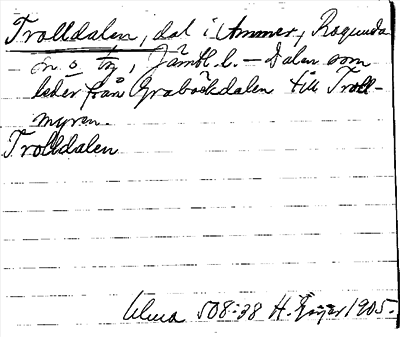 Trolldalen, dal i Ammer, Ragunda
sn o tg, Jämtl. l. – Dalen som
leder från Grabäckdalen till Troll-
myren.
Trolldalen
Ulma 508:38 H. Geijer 1905.